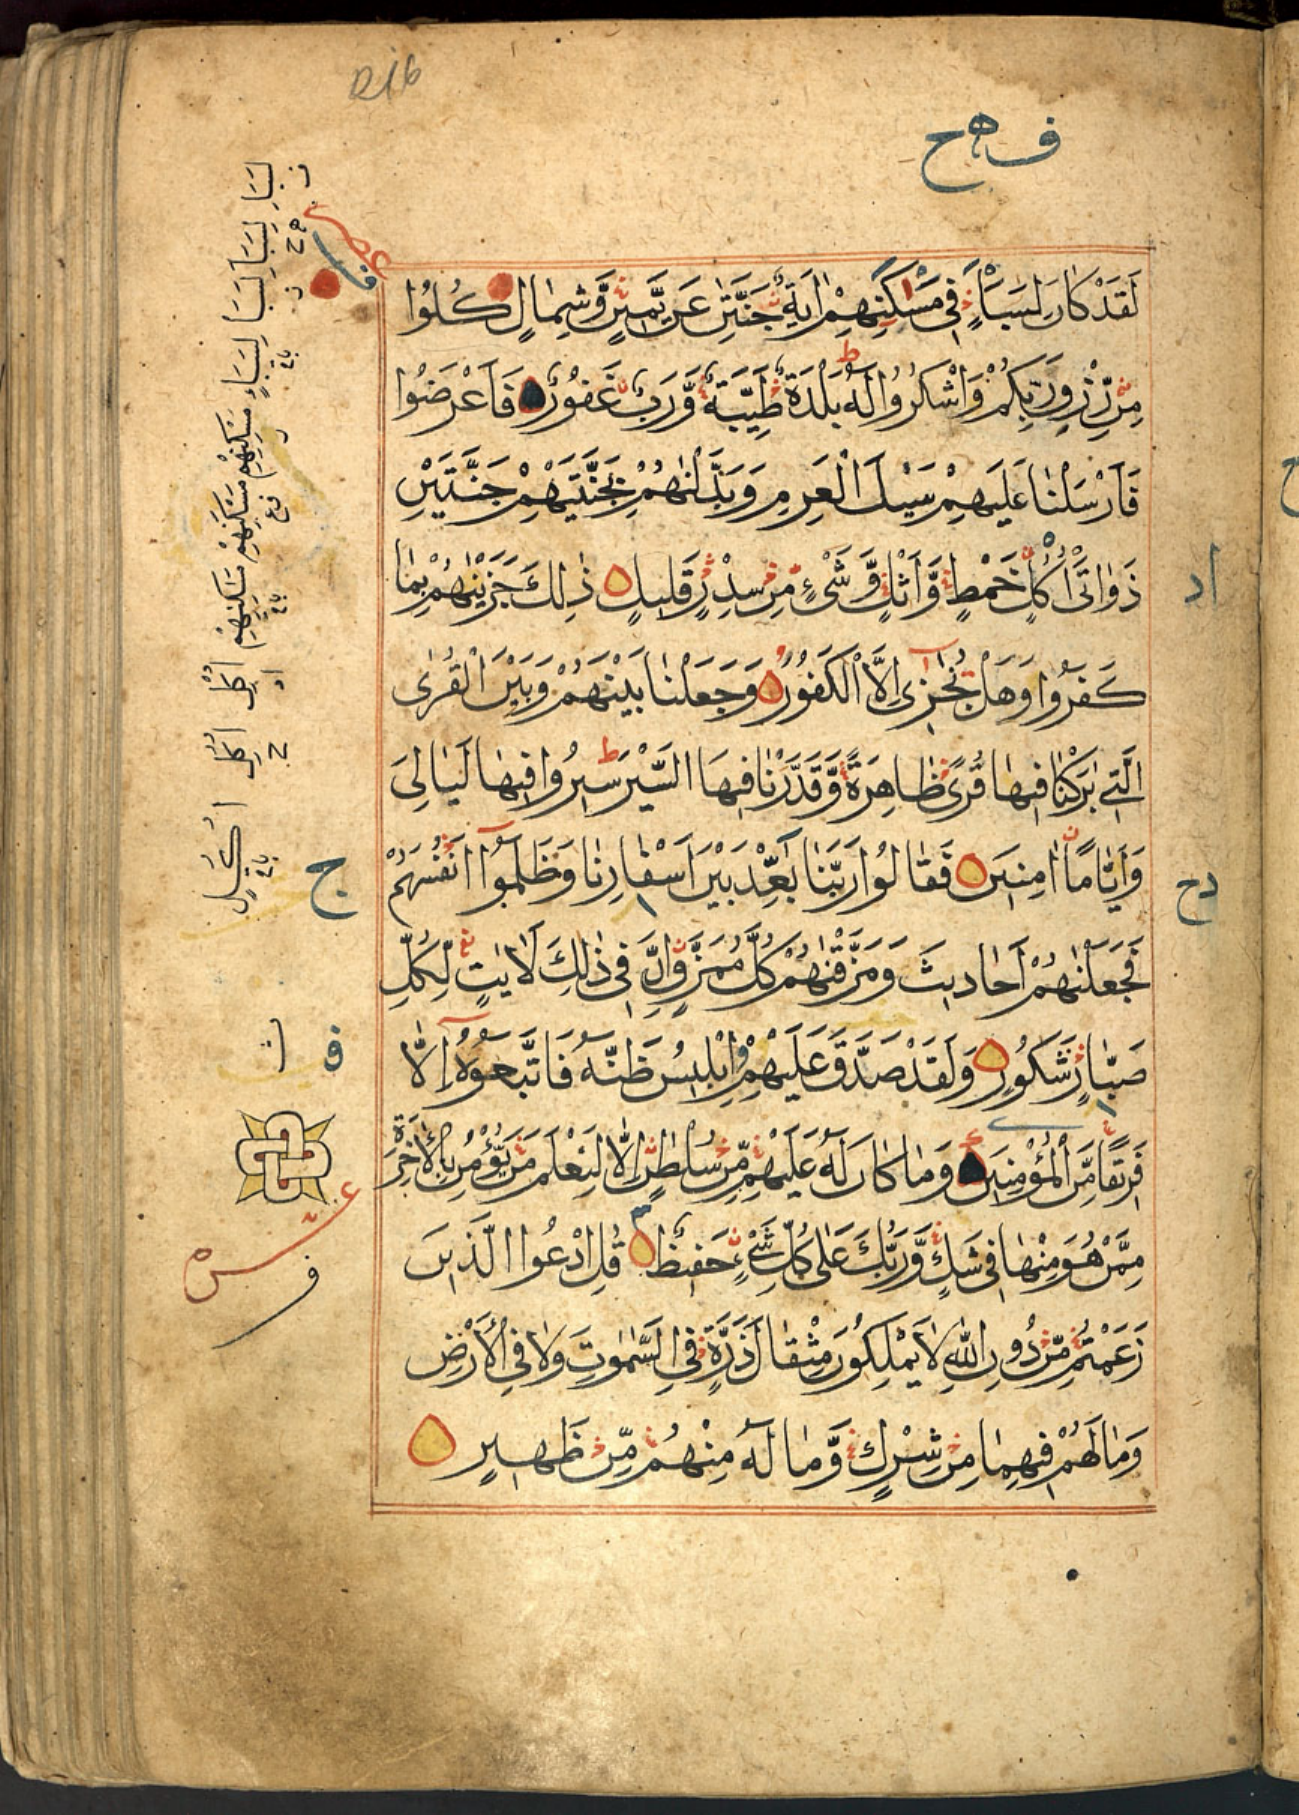 لَقَدْ كَانَ لِسَبَإٍ فِى مَسْكَنِهِمْ اٰيَةٌ جَنَّتٰنِ عَنْ يَّمِيْنٍ وَّشِمَالٍ كُلُوْا
مِنْ رِّزْقِ رَبِّكُمْ وَاشْكُرُوْا لَهٗ بَلْدَةٌ طَيِّبَةٌ وَّرَبٌّ غَفُوْرٌ فَاَعْرَضُوْا
فَاَرْسَلْنَا عَلَيْهِمْ سَيْلَ الْعَرِمِ وَبَدَّلْنٰهُمْ بِجَنَّتَيْهِمْ جَنَّتَيْنِ
ذَوَاتَىْ اُكُلٍ خَمْطٍ وَّاَثْلٍ وَّشَىْءٍ مِّنْ سِدْرٍ قَلِيْلٍ ذٰلِكَ جَزَيْنٰهُمْ بِمَا
كَفَرُوْا وَهَلْ نُجٰزِىْ اِلَّا الْكَفُوْرَ وَجَعَلْنَا بَيْنَهُمْ وَبَيْنَ الْقُرَى
الَّتِىْ بٰرَكْنَا فِيْهَا قُرًى ظَاهِرَةً وَّقَدَّرْنَا فِيْهَا السَّيْرَ سِيْرُوْا فِيْهَا لَيَالِىَ
وَاَيَّامًا اٰمِنِيْنَ فَقَالُوْا رَبَّنَا بَعِّدْ بَيْنَ اَسْفَارِنَا وَظَلَمُوْا اَنْفُسَهُمْ
فَجَعَلْنٰهُمْ اَحَادِيْثَ وَمَزَّقْنٰهُمْ كُلَّ مُمَزَّقٍ اِنَّ فِىْ ذٰلِكَ لَاٰيٰتٍ لِّكُلِّ
صَبَّارٍ شَكُوْرٍ وَلَقَدْ صَدَّقَ عَلَيْهِمْ اِبْلِيْسُ ظَنَّهٗ فَاتَّبَعُوْهُ اِلَّا
فَرِيْقًا مِّنَ الْمُؤْمِنِيْنَ وَمَا كَانَ لَهٗ عَلَيْهِمْ مِّنْ سُلْطٰنٍ اِلَّا لِنَعْلَمَ مَنْ يُّؤْمِنُ بِالْاٰخِرَةِ
مِمَّنْ هُوَ مِنْهَا فِىْ شَكٍّ وَّرَبُّكَ عَلٰى كُلِّ شَىْءٍ حَفِيْظٌ قُلِ ادْعُوا الَّذِيْنَ
زَعَمْتُمْ مِّنْ دُوْنِ اللّٰهِ لَا يَمْلِكُوْنَ مِثْقَالَ ذَرَّةٍ فِى السَّمٰوٰتِ وَلَا فِى الْاَرْضِ
وَمَا لَهُمْ فِيْهِمَا مِنْ شِرْكٍ وَّمَا لَهٗ مِنْهُمْ مِّنْ ظَهِيْرٍ
اد
دح
ج
ف